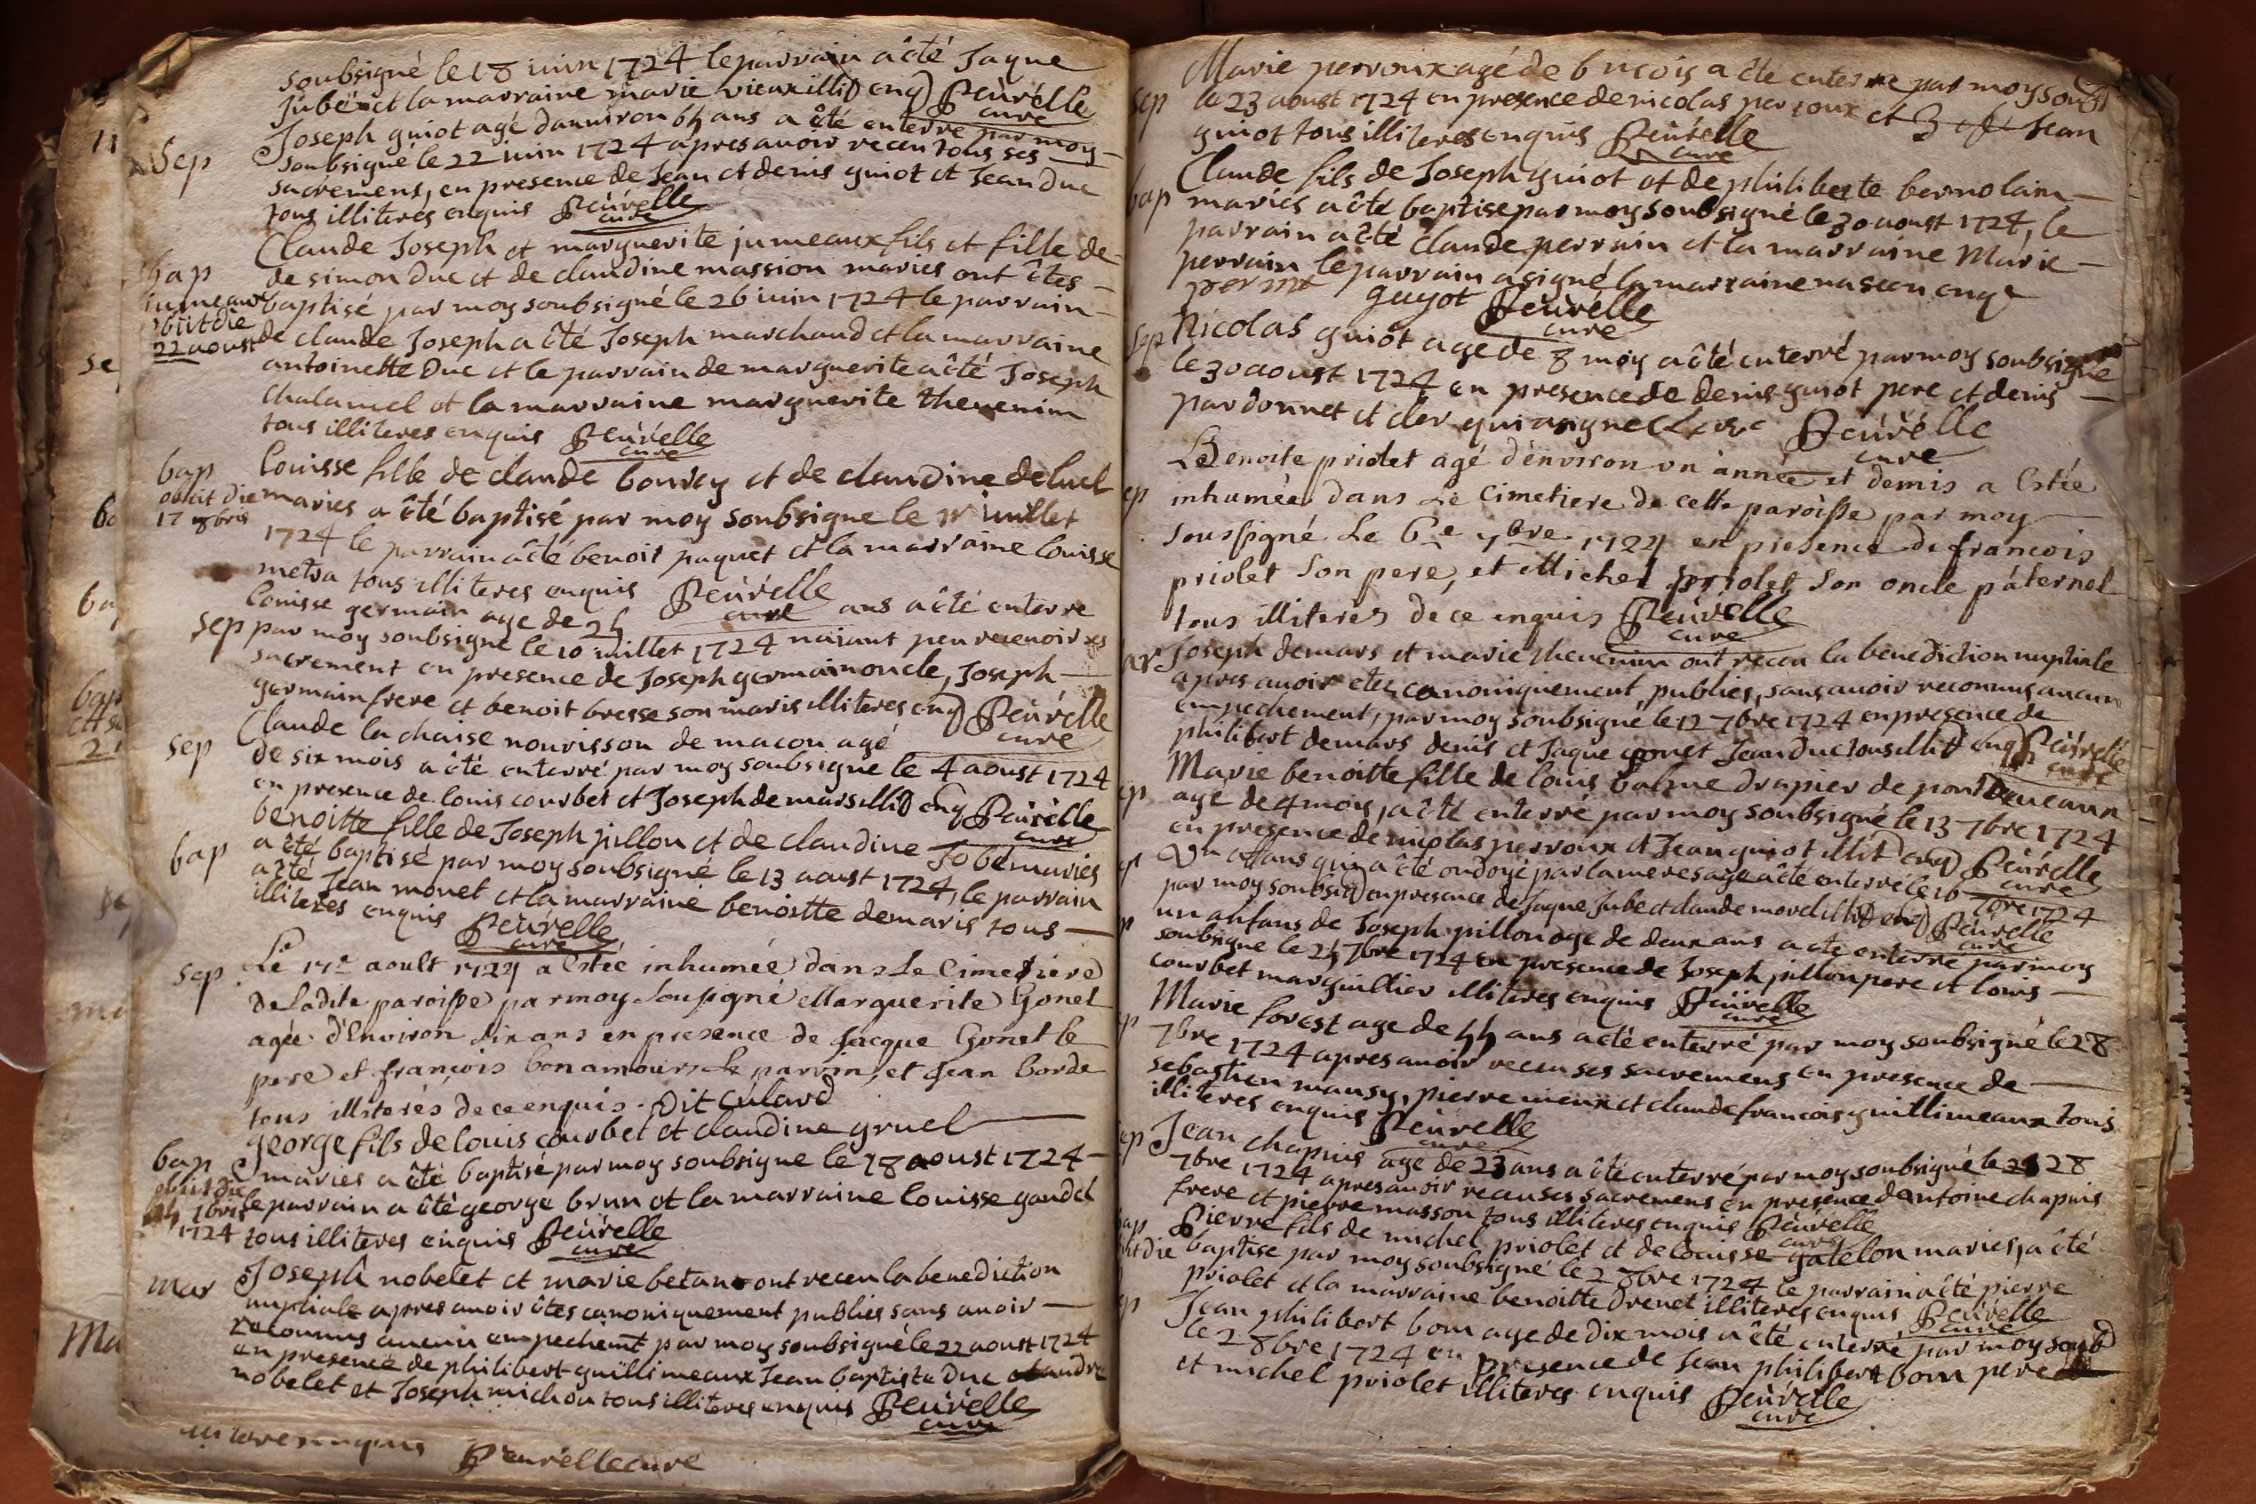 soubsigné le 18 iuin 1724 le parrain a été Jaque
Jubé et la marraine marie vieux illi enq Peuvrélle
cure
Sep Joseph guiot agé danuiron 64 ans a été enterre par moy
soubsigné le 22 iuin 1724 apres auoir receu tous ses
sacremens, en presence de Jean et denis guiot et Jean Duc
tous illiterés enquis Peuvrélle
cure
bap Claude Joseph et marguerite jumeaux fils et fille de
jumeaux de simon Duc et de claudine massion mariés ont étés
baptisé par moy soubsigné le 26 iuin 1724 le parrain
obiit die de claude Joseph a été Joseph marchand et la marraine
22 aoust antoinette Duc et le parrain de marguerite a été Joseph
chalamel et la marraine marguerite thevenin
tous illiteres enquis Peuvrélle
cure
bap Louisse fille de claude bourcy et de claudine deluel
obiit die maries a été baptisé par moy soubsigne le iuillet
17 8bris 1724 le parrain a été benoit paquet et la marraine louisse
metra tous illiteres enquis Peuvrélle
cure
Sep Louisse germain age de ans a été enterre
par moy soubsigné le 10 iuillet 1724 naiant peu receuoir ses
sacrement en presence de Joseph germain oncle, Joseph
germain frere et benoit bresse son maris illiteres enq Peuvrélle
cure
Sep Claude la chaise nourisson de macon agé
de six mois a été enterré par moy soubsigne le 4 aoust 1724
en presence de louis courbet et Joseph demars illi enq Peuvrélle
cure
bap benoitte fille de Joseph jullon et de claudine Jobé mariés
a été baptisé par moy soubsigné le 13 aoust 1724, le parrain
a été Jean monet et la marraine benoitte demaris tous
illiteres enquis Peuvrélle
cure
Sep Le aoust 1724 a Estée inhumée dans Le Cimetiere
de Ladite paroisse par moy soussigné Marguerite Gonet
agée d'Environ dix ans en presence de Jacque Gonet le
pere et françois bonamour parrin, et Jean borde
tous illiterés de ce enquis. Dit Culard
bap george fils de louis courbet et claudine gruel
obiit die mariés a été baptisé par moy soubsigne le 18 aoust 1724
7bris le parrain a été george brun et la marraine louisse gaudet
1724 tous illiteres enquis Peuvrélle
cure
mar Joseph nobelet et marie betan ont receu la benediction
nuptiale apres auoir étes canoniquement publies sans auoir
reconnus aucun empechemt par moy soubsigné le 22 aoust 1724
en presence de philibert guillimeaux Jean baptiste Duc claude
nobelet et Joseph michon tous illiteres enquis Peuvrélle
cure
illiteres enquis Peuvrélle cure
Marie perroux agé de 6 mois a été enterre par moy soubs
sep le 23 aoust 1724 en presence de nicolas perroux et Jean
guiot tous illiteres enquis Peuvrélle
cure
bap Claude fils de Joseph guiot et de philiberte bernolain
mariés a été baptise par moy soubsigné le 30 aoust 1724, le
parrain a été claude perrain et la marraine Marie
perrain le parrain a signé la marraine na sceu enq
perrin guyot Peuvrélle
cure
sep Nicolas guiot age de 8 moy a été enterré par moy soubsigné
le 30 aoust 1724 en presence de denis guiot pere et denis
pardonnet et cler qui a signe Peuvrélle
cure
Benoite priolet agé d'environ un année et demis a Estée
ep inhumée dans Le Cimetiere de cette paroisse par moy
soussigné Le 6e 7bre 1724 en presence de francois
priolet son pere, et Michel priolet son oncle paternel
tous illiterés de ce enquis Peuvrélle
cure
ar Joseph demars et marie thevenin ont receu la benediction nuptiale
apres auoir etes canoniquement publies, sans auoir reconnus aucun
empechement, par moy soubsigné le 12 7bre 1724 en presence de
philibert demars denis et Jaque gonet Jean Duc tous illit enq Peuvrélle
cure
ep Marie benoitte fille de louis balme drapier de pont deueaux
age de 4 mois, a été enterré par moy soubsigné le 13 7bre 1724
en presence de nicolas perroux et Jean guiot illit enq Peuvrélle
cure
Un enfans qui a été ondoyé par la mere sage a été enterré le 16 7bre 1724
par moy soubsig en presence de Jaque Jube et claude morel illit enq Peuvrélle
cure
p un anfans de Joseph jullon age de deux ans a été enterré par moy
soubsigne le 7bre 1724 en presence de Joseph jullon pere et louis
courbet marguillier illiteres enquis Peuvrélle
cure
ep Marie forest age de 44 ans a été enterré par moy soubsigné le 28
7bre 1724 apres auoir receu ses sacremens en presence de
sebastien mansy, pierre uieux et claude francois guillimeaux tous
illiteres enquis Peuvrélle
cure
ep Jean chapuis age de 23 ans a été enterré par moy soubsigné le 28
7bre 1724 apres auoir receu ses sacremens en presence dantoine chapuis
frere et pierre masson tous illiteres enquis Peuvrélle
cure
bap Pierre fils de michel priolet et de louisse gatelon maries, a été
die baptise par moy soubsigné le 2 8bre 1724 le parrain a été pierre
priolet et la marraine benoitte drenet illiteres enquis Peuvrélle
cure
ep Jean philibert bom age de dix mois a été enterre par moy soub
le 2 8bre 1724 en presence de Jean philibert bom pere
et michel priolet illiteres enquis Peuvrélle
cure